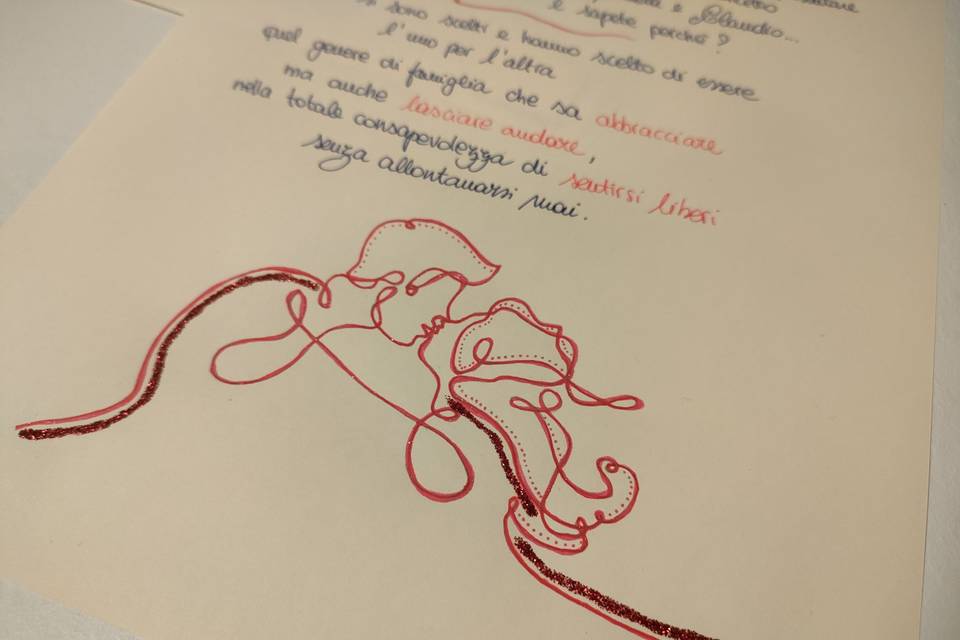 e Claudio...
e sapete perché?
si sono scelti e hanno scelto di essere
l'uno per l'altra
quel genere di famiglia che sa abbracciare
ma anche lasciare andare,
nella totale consapevolezza di sentirsi liberi
senza allontanarsi mai.